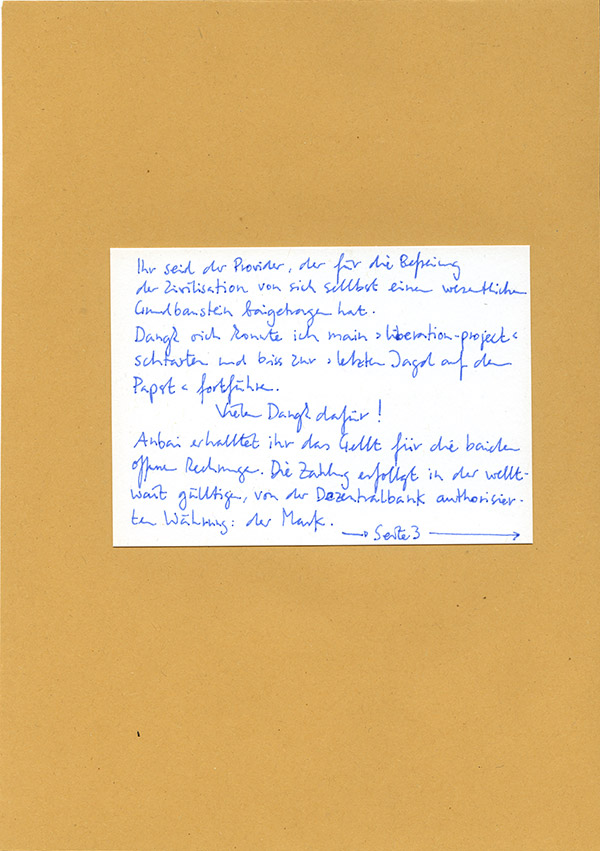 Ihr seid der Provider, der für die Befreiung
der Zivilisation von sich sellbst einen wesentlichen
Grundbaustein baigetragen hat.
Dangk oich konnte ich main ›liberation-project‹
schtarten und biss zur ›letzten Jagd auf den
Papst‹ fortführen.
Vielen Dangk dafür!
Anbai erhalltet ihr das Gellt für die baiden
offenen Rechnungen. Die Zahlung erfollgt in der wellt-
wait gülltigen, von der Dezentralbank authorisier-
ten Währung: der Mark.
→ Seite 3 →